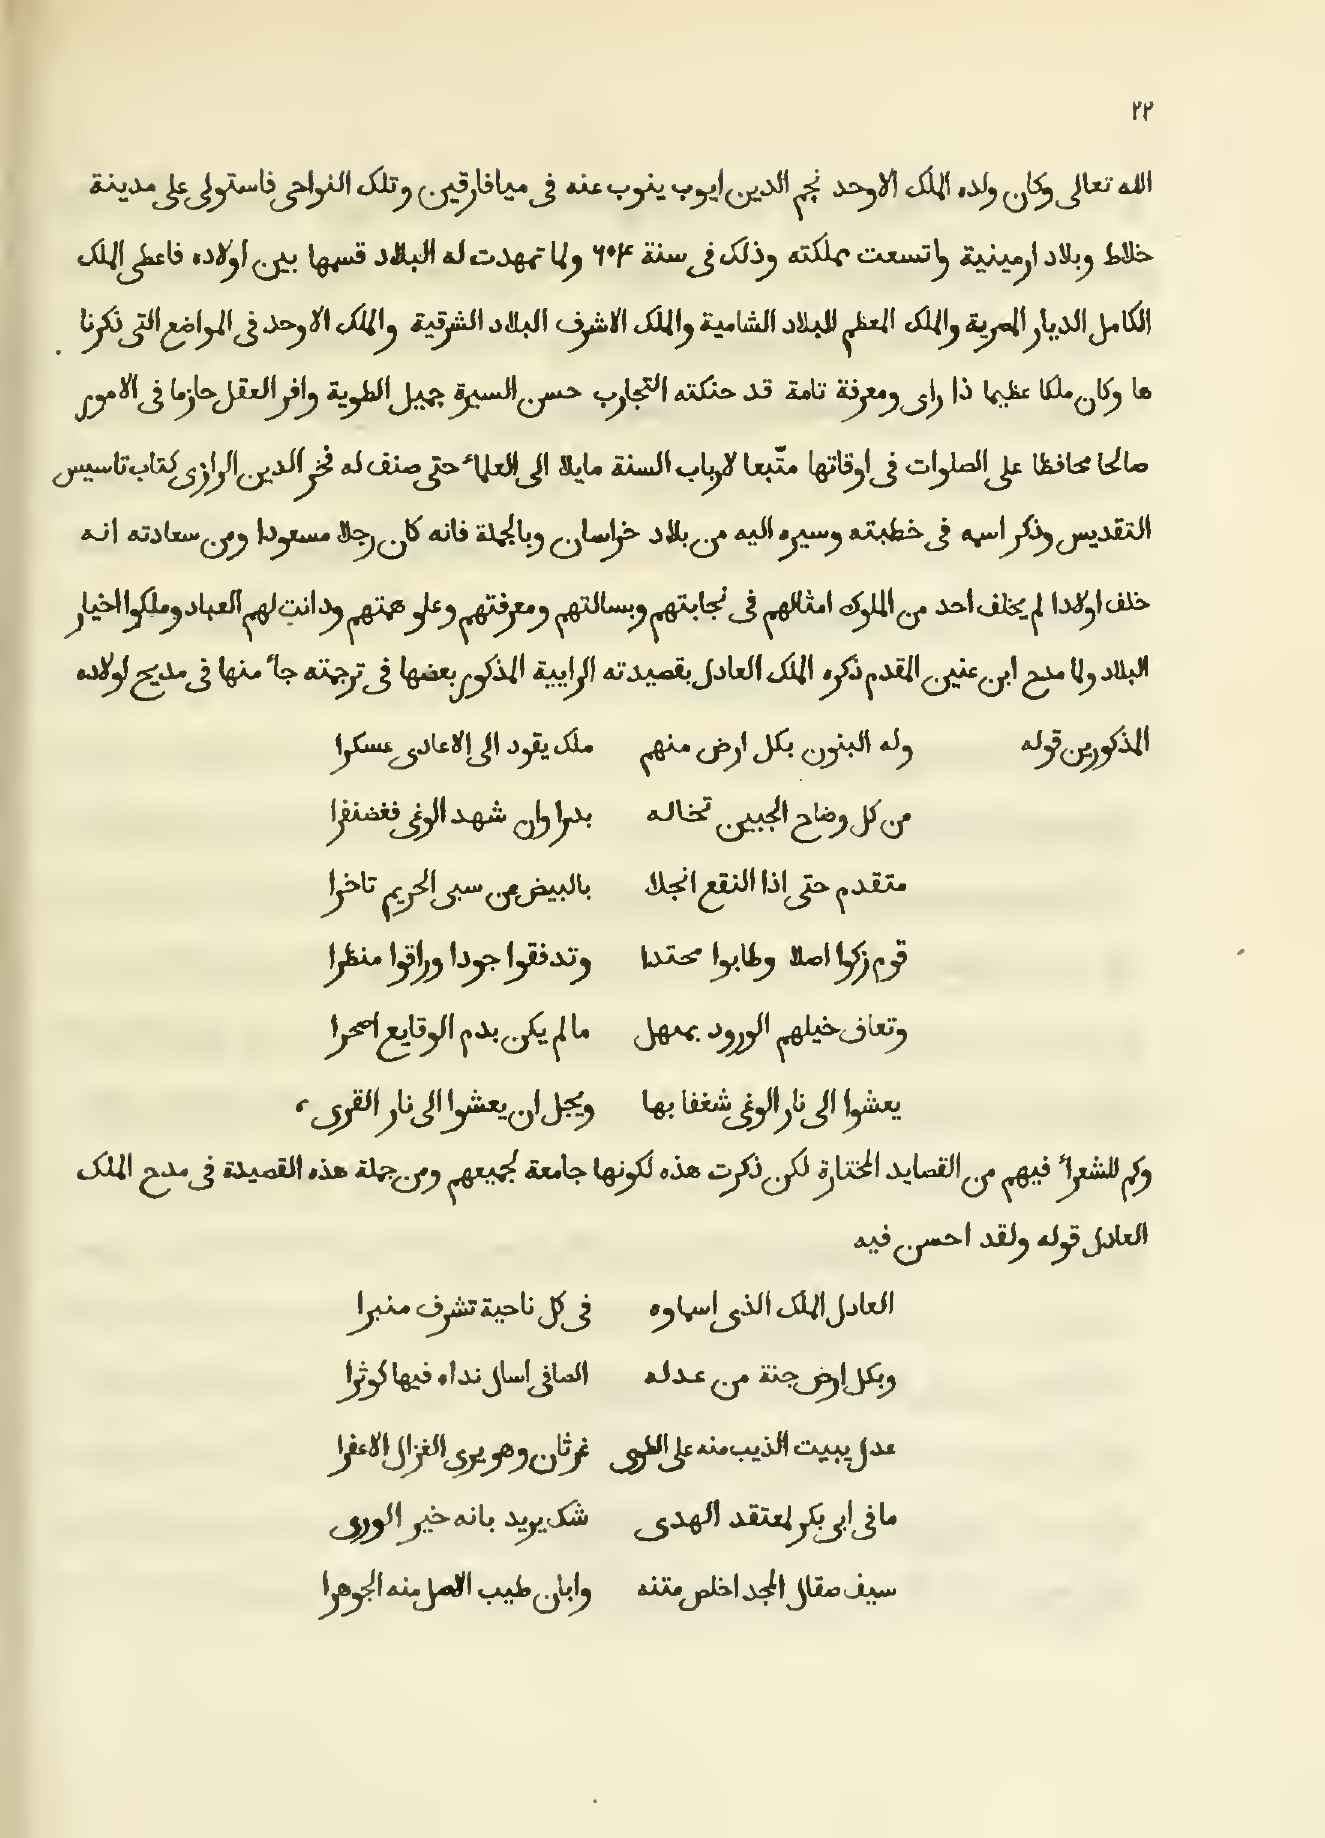 ٢٢
الله تعالى وكان ولده الملك الاوحد نجم الدين ايوب ينوب عنه فى ميافارقين وتلك النواحى فاستولى على مدينة
خلاط وبلاد ارمينية واتسعت مملكته وذلك فى سنة ٦٠٤ ولما تمهدت له البلاد قسمها بين اولاده فاعطى الملك
الكامل الديار المصرية والملك المعظم البلاد الشامية والملك الاشرف البلاد الشرقية والملك الاوحد فى المواضع التى ذكرنا
ها وكان ملكا عظيما ذا راى ومعرفة تامة قد حنكته التجارب حسن السيرة جميل الطوية وافر العقل حازما فى الامور
صالحا محافظا على الصلوات فى اوقاتها متّبعا لارباب السنة مايلا الى العلماء حتى صنف له فخر الدين الرازى كتاب تاسيس
التقديس وذكر اسمه فى خطبته وسيره اليه من بلاد خراسان وبالجملة فانه كان رجلا مسعودا ومن سعادته انه
خلف اولادا لم يخلف احد من الملوك امثالهم فى نجابتهم وبسالتهم ومعرفتهم وعلو همتهم ودانت لهم العباد وملكوا اخيار
البلاد ولما مدح ابن عنين المقدم ذكره الملك العادل بقصيدته الرايية المذكور بعضها فى ترجمته جاء منها فى مديح لولاده
المذكورين قوله وله البنون بكل ارض منهم ملك يقود الى الاعادى عسكرا
من كل وضاح الجبين تخاله بدرا وان شهد الوغى فغضنفرا
متقدم حتى اذا النقع انجلا بالبيض من سبى الحريم تاخرا
قوم زكوا اصلا وطابوا محتدا وتدفقوا جودا وراقوا منظرا
وتعاف خيلهم الورود بمنهل مالم يكن بدم الوقايع احمرا
يعشوا الى نار الوغى شغفا بها ويجل ان يعشوا الى نار القرى
وكم للشعراء فيهم من القصايد المختارة لكن ذكرت هذه لكونها جامعة لجميعهم ومن جملة هذه القصيدة فى مدح الملك
العادل قوله ولقد احسن فيه
العادل الملك الذى اسماوه فى كل ناحية تشرف منبرا
وبكل ارض جنة من عدله الصافى اسال نداه فيها كوثرا
عدل يبيت الذيب منه على الطوى غرثان وهو يرى الغزال الاعفرا
مافى ابى بكر لمعتقد الهدى شك يريد بانه خير الورى
سيف صقال المجد اخلص متنه وابان طيب الاصل منه الجوهرا